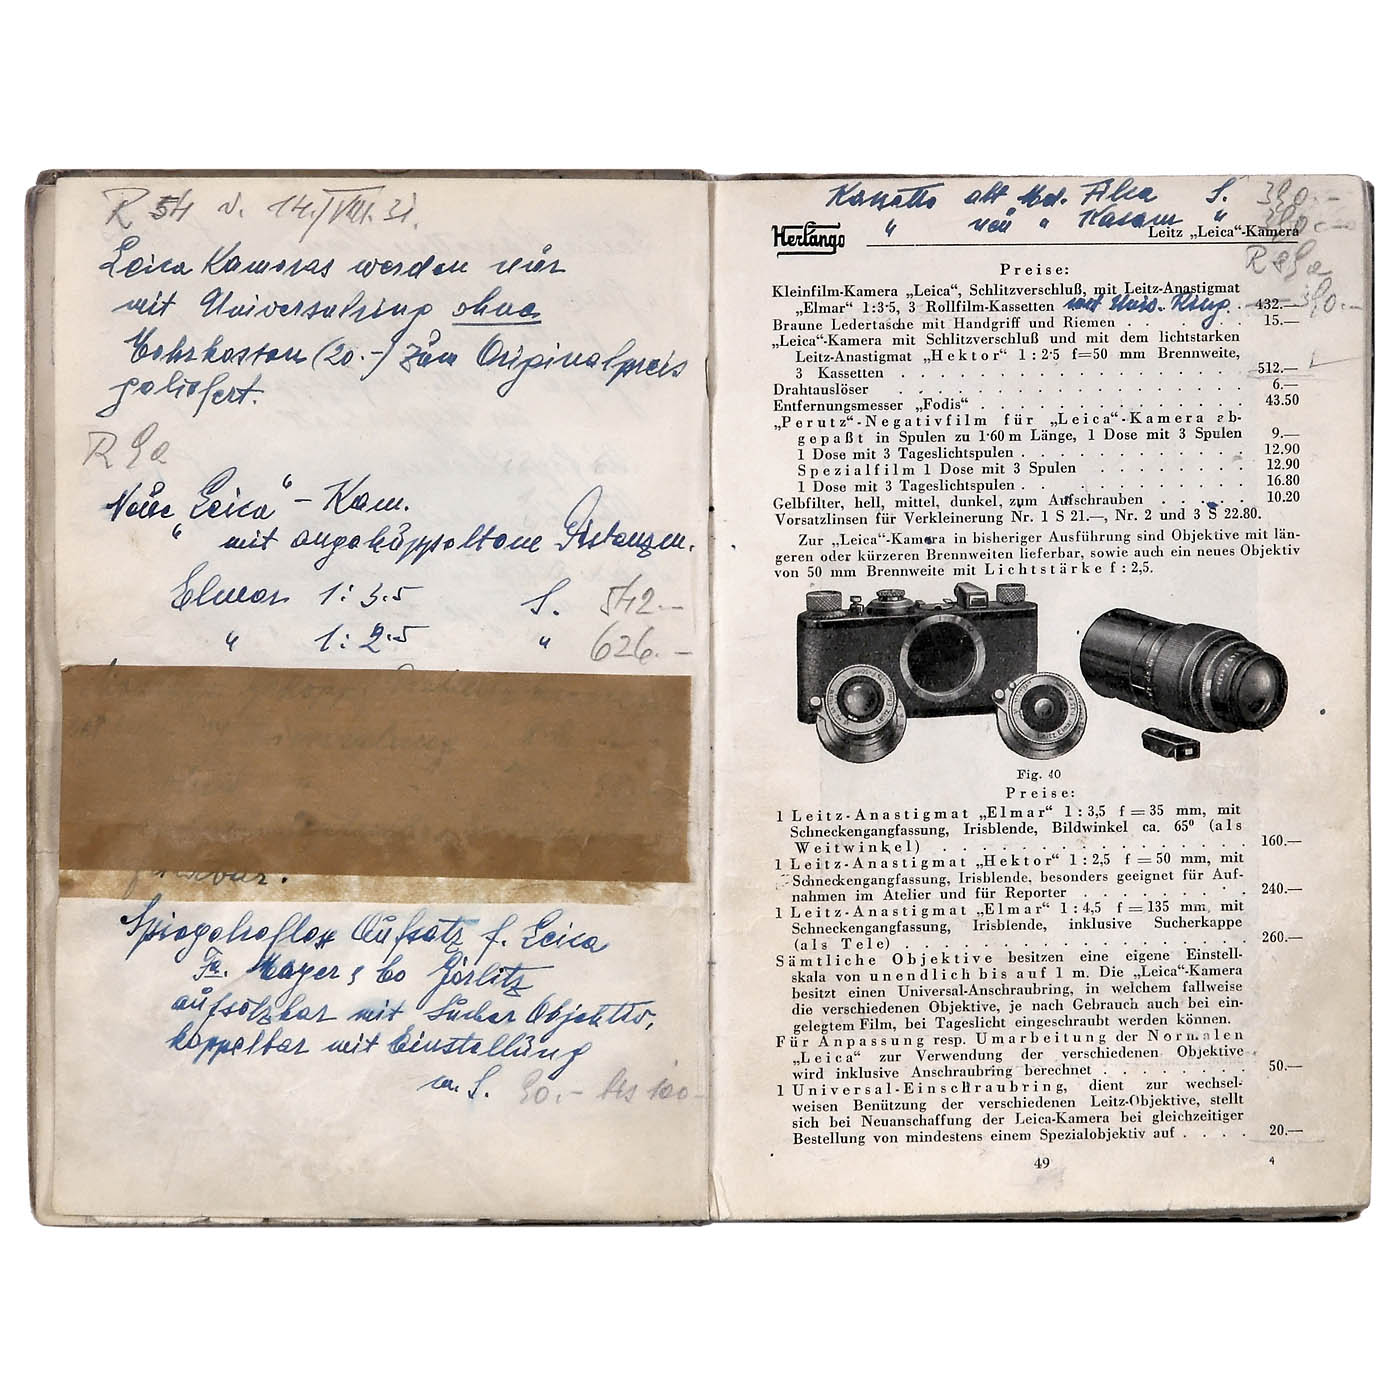 R 54 v. 14./VIII.31.
Leica Kameras werden nur
mit Universalring ohne
Mehrkosten (20.-) zum Originalpreis
geliefert.
Neue „Leica“ - Kam.
" mit angekuppeltem Distanzm.
Elmar 1:3.5 S. 542.-
" 1:2.5 " 626.-
Spiegelreflex Aufsatz f. Leica
Fa. Mayer & Co Görlitz
aufsetzbar mit Sucher Objektiv,
koppelbar mit Einstellung
ca. S. 90.- bis 100-
Kassette alt S.
" neu " "
Herlango
Leitz „Leica“-Kamera
Preise:
Kleinfilm-Kamera „Leica“, Schlitzverschluß, mit Leitz-Anastigmat
„Elmar“ 1:3·5, 3 Rollfilm-Kassetten mit Univ. Ring . 432.—
Braune Ledertasche mit Handgriff und Riemen . . . . . . . 15.—
„Leica“-Kamera mit Schlitzverschluß und mit dem lichtstarken
Leitz-Anastigmat „Hektor“ 1 : 2·5 f=50 mm Brennweite,
3 Kassetten . . . . . . . . . . . . . . . . . 512.—
Drahtauslöser . . . . . . . . . . . . . . . . . 6.—
Entfernungsmesser „Fodis“ . . . . . . . . . . . . . 43.50
„Perutz“-Negativfilm für „Leica“-Kamera ab-
gepaßt in Spulen zu 1·60 m Länge, 1 Dose mit 3 Spulen 9.—
1 Dose mit 3 Tageslichtspulen . . . . . . . . . . . 12.90
Spezialfilm 1 Dose mit 3 Spulen . . . . . . . 12.90
1 Dose mit 3 Tageslichtspulen . . . . . . . . . . . 16.80
Gelbfilter, hell, mittel, dunkel, zum Aufschrauben . . . . . 10.20
Vorsatzlinsen für Verkleinerung Nr. 1 S 21.—, Nr. 2 und 3 S 22.80.
Zur „Leica“-Kamera in bisheriger Ausführung sind Objektive mit län-
geren oder kürzeren Brennweiten lieferbar, sowie auch ein neues Objektiv
von 50 mm Brennweite mit Lichtstärke f : 2,5.
Fig. 40
Preise:
1 Leitz-Anastigmat „Elmar“ 1 : 3,5 f = 35 mm, mit
Schneckengangfassung, Irisblende, Bildwinkel ca. 65° (als
Weitwinkel) . . . . . . . . . . . . . . . . 160.—
1 Leitz-Anastigmat „Hektor“ 1 : 2,5 f = 50 mm, mit
Schneckengangfassung, Irisblende, besonders geeignet für Auf-
nahmen im Atelier und für Reporter . . . . . . . . . 240.—
1 Leitz-Anastigmat „Elmar“ 1 : 4,5 f = 135 mm, mit
Schneckengangfassung, Irisblende, inklusive Sucherkappe
(als Tele) . . . . . . . . . . . . . . . . . 260.—
Sämtliche Objektive besitzen eine eigene Einstell-
skala von unendlich bis auf 1 m. Die „Leica“-Kamera
besitzt einen Universal-Anschraubring, in welchem fallweise
die verschiedenen Objektive, je nach Gebrauch auch bei ein-
gelegtem Film, bei Tageslicht eingeschraubt werden können.
Für Anpassung resp. Umarbeitung der Normalen
„Leica“ zur Verwendung der verschiedenen Objektive
wird inklusive Anschraubring berechnet . . . . . . . . 50.—
1 Universal-Einschraubring, dient zur wechsel-
weisen Benützung der verschiedenen Leitz-Objektive, stellt
sich bei Neuanschaffung der Leica-Kamera bei gleichzeitiger
Bestellung von mindestens einem Spezialobjektiv auf . . . . 20.—
49
4